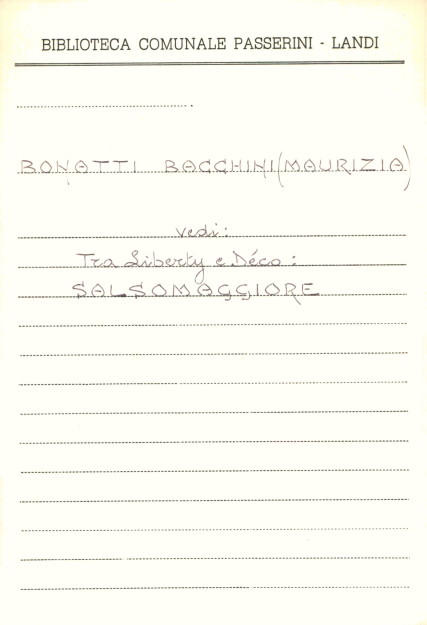 BIBLIOTECA COMUNALE PASSERINI - LANDI
BONATTI BACCHINI (MAURIZIA)
vedi:
Tra Liberty e Déco:
SALSOMAGGIORE